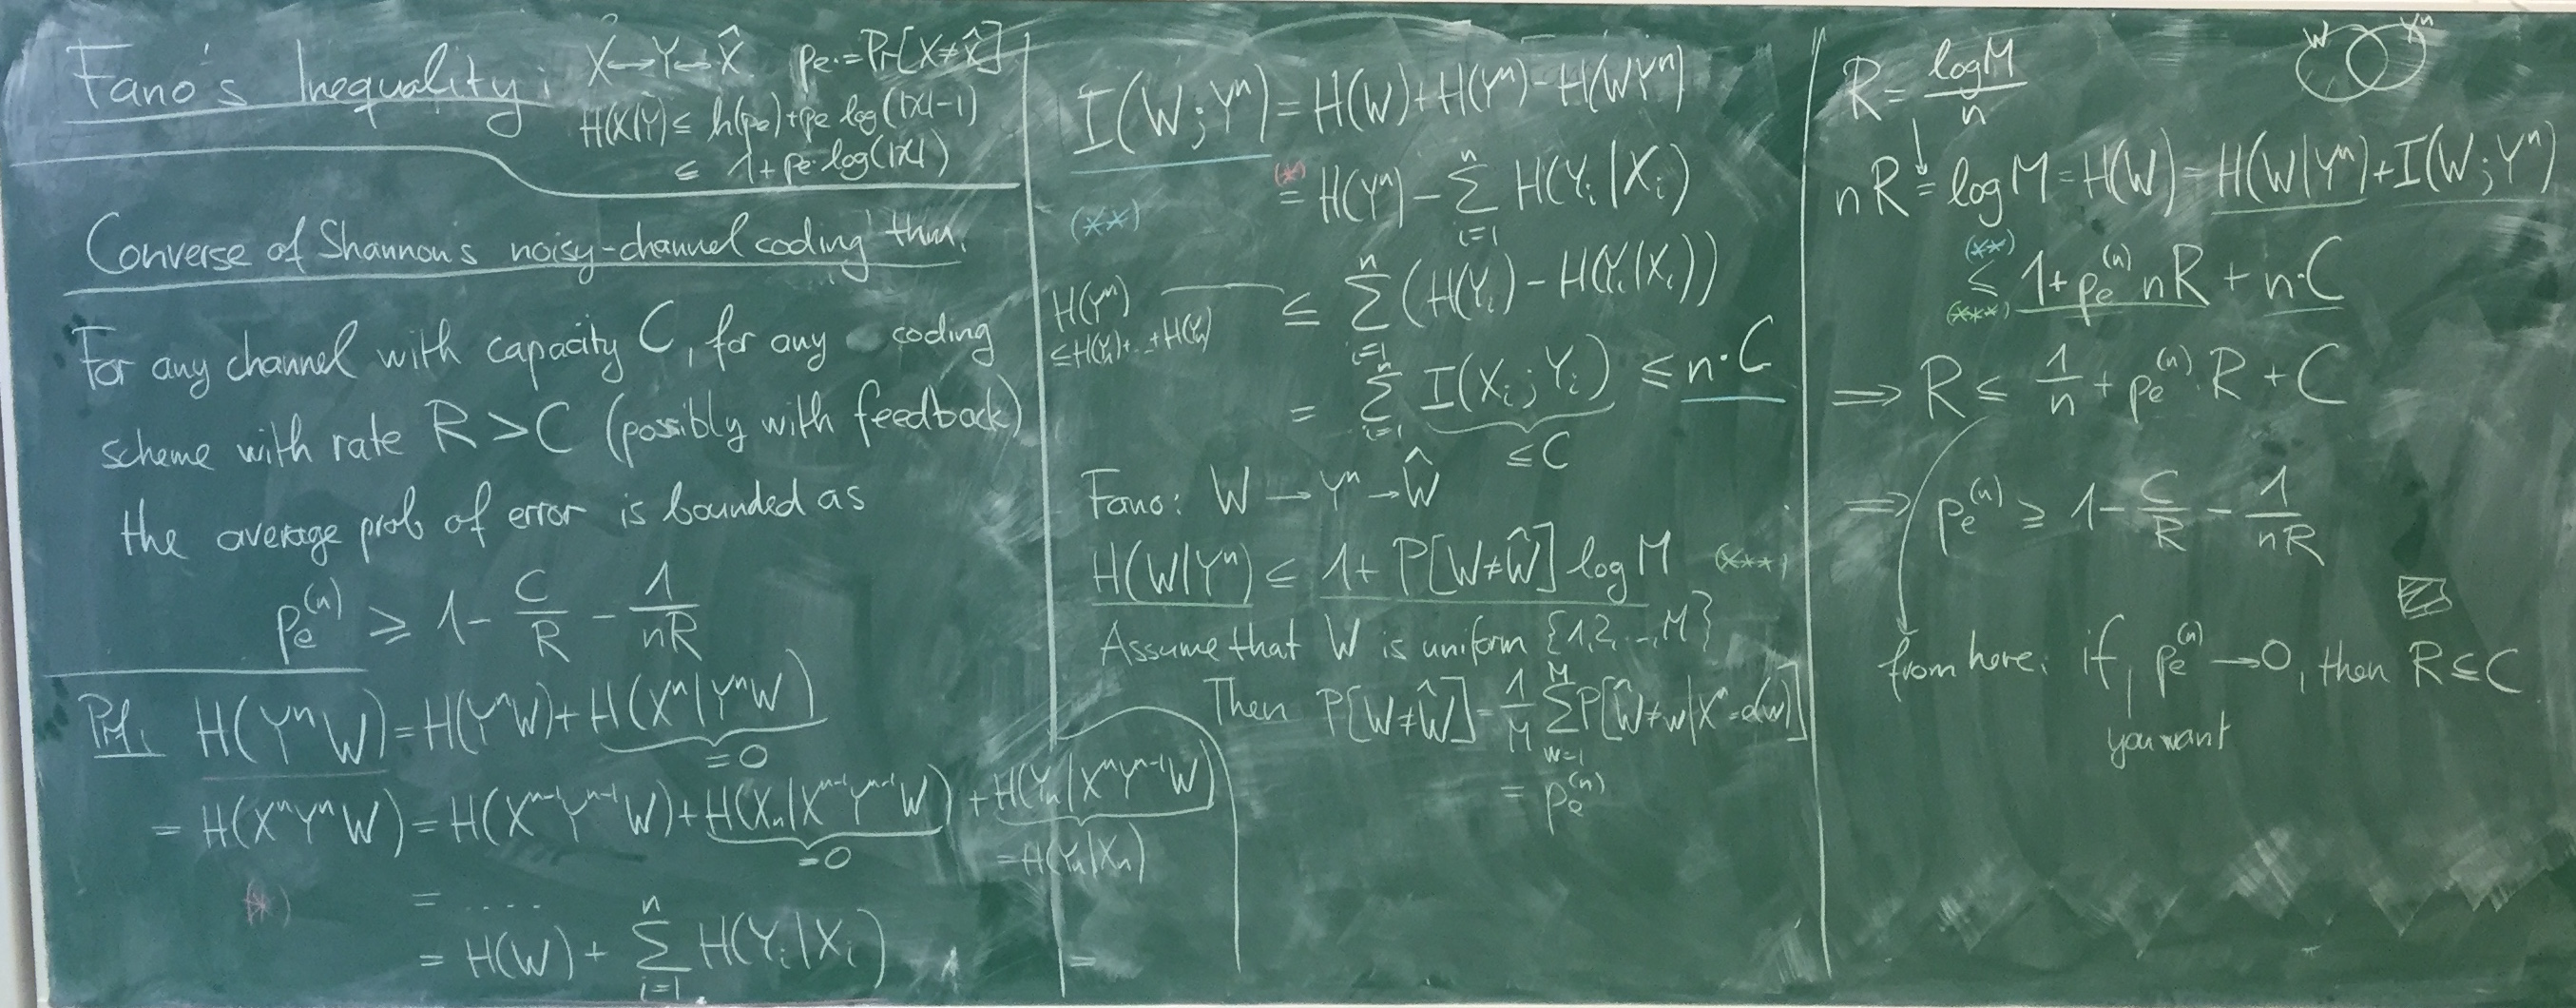 Fano's Inequality: X↔Y↔X̂ pe:=Pr[X≠X̂]
H(X|Y) ≤ h(pe)+pe log(|X|-1)
≤ 1+pe·log(|X|)
Converse of Shannon's noisy-channel coding thm.
For any channel with capacity C, for any coding
scheme with rate R>C (possibly with feedback)
the average prob of error is bounded as
pe^(n) ≥ 1- C/R - 1/nR
Prf: H(Y^n W) = H(Y^n W) + H(X^n|Y^n W)
=0
= H(X^n Y^n W) = H(X^{n-1} Y^{n-1} W) + H(X_n|X^{n-1} Y^{n-1} W) + H(Y_n|X^n Y^{n-1} W)
=0
=H(Y_n|X_n)
(*)
= ....
= H(W) + Σ_{i=1}^{n} H(Y_i|X_i)
=
I(W;Y^n) = H(W)+H(Y^n)-H(WY^n)
(*)
= H(Y^n) - Σ_{i=1}^{n} H(Y_i|X_i)
(**)
H(Y^n)
≤H(Y_1)+...+H(Y_n)
≤ Σ_{i=1}^{n} (H(Y_i) - H(Y_i|X_i))
= Σ_{i=1}^{n} I(X_i;Y_i) ≤ n·C
≤C
Fano: W→Y^n→Ŵ
H(W|Y^n) ≤ 1+ P[W≠Ŵ] log M (***)
Assume that W is uniform {1,2,..,M}
Then P[W≠Ŵ] = 1/M Σ_{w=1}^{M} P[Ŵ≠w|X^n=e(w)]
= pe^(n)
R = logM/n
W Y^n
nR = log M = H(W) = H(W|Y^n) + I(W;Y^n)
(**)
≤ 1+ pe^(n) nR + n·C
(***)
⟹ R ≤ 1/n + pe^(n)·R + C
⟹ pe^(n) ≥ 1- C/R - 1/nR
from here: if pe^(n) → 0, then R ≤ C
you want